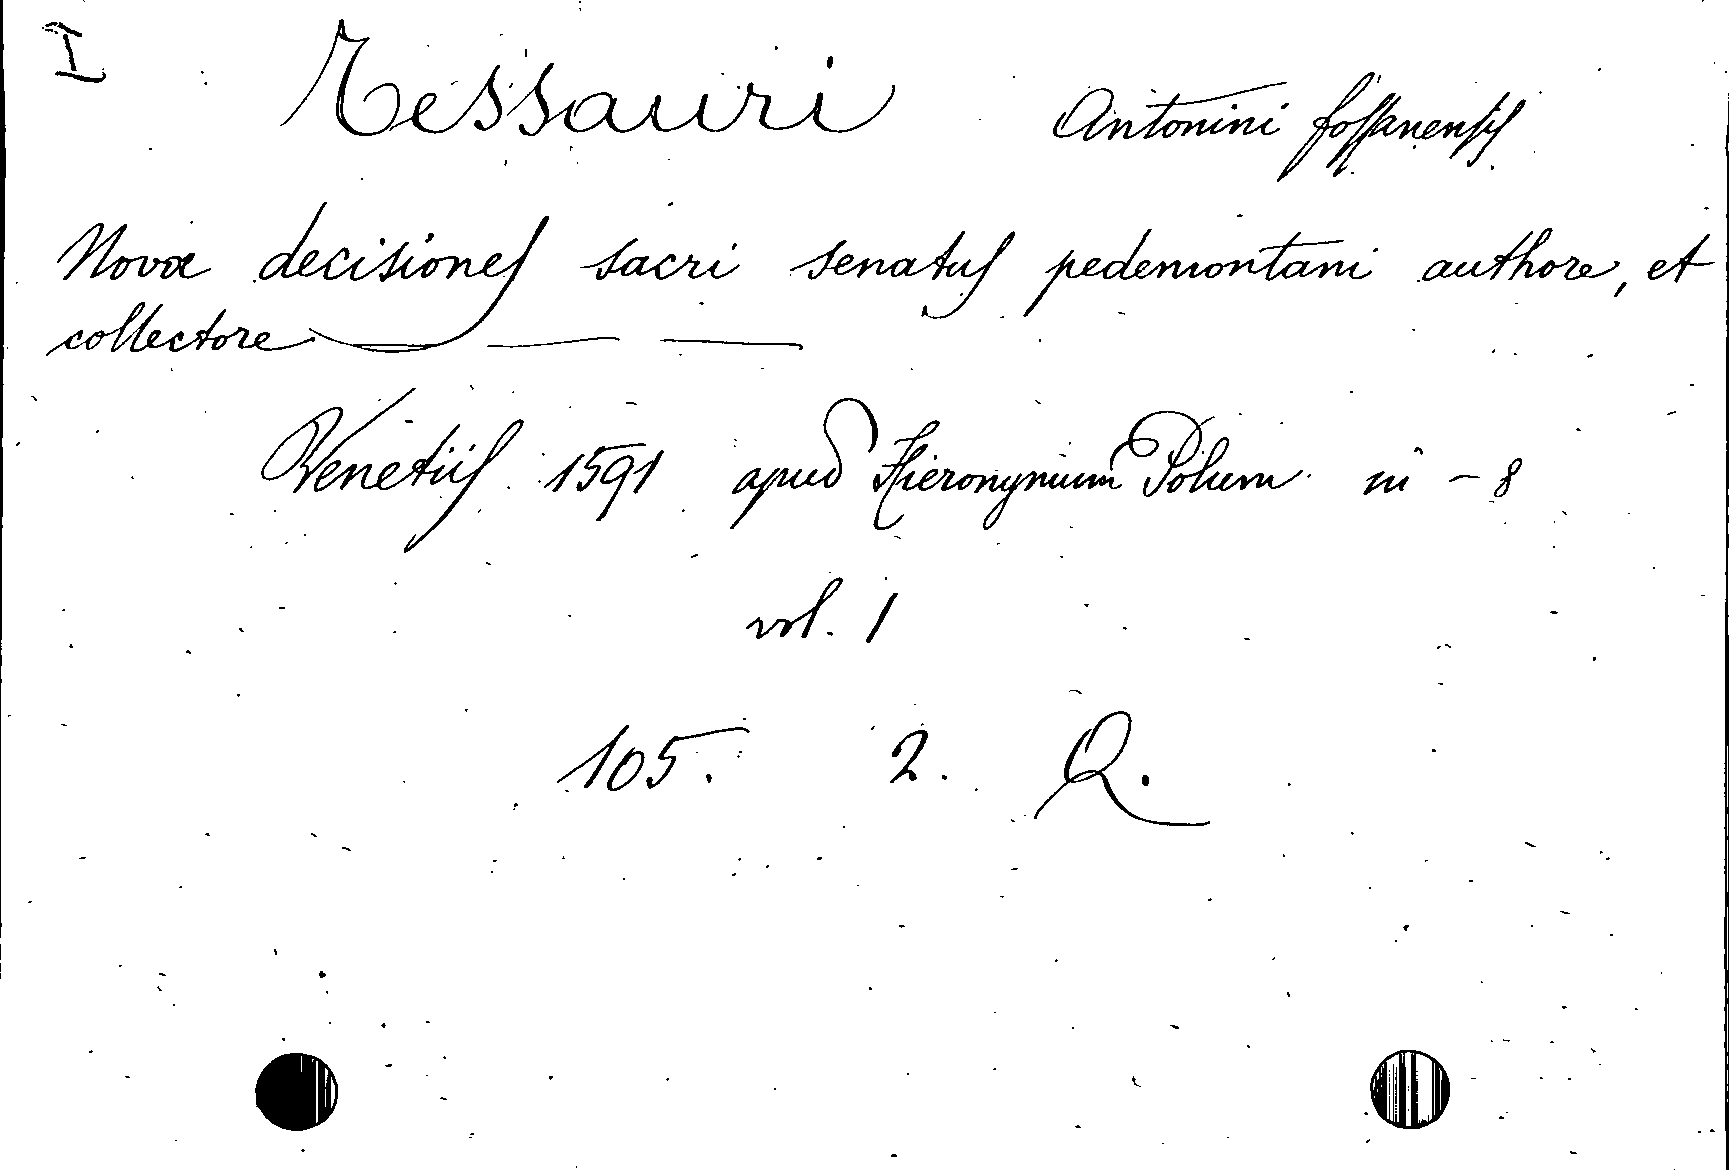 I
Tessauri Antonini fossanensis
Novæ decisiones sacri senatus pedemontani authore, et
collectore — — —
Venetiis 1591 apud Hieronymum Polum in - 8
vol. 1
105. 2. Q.